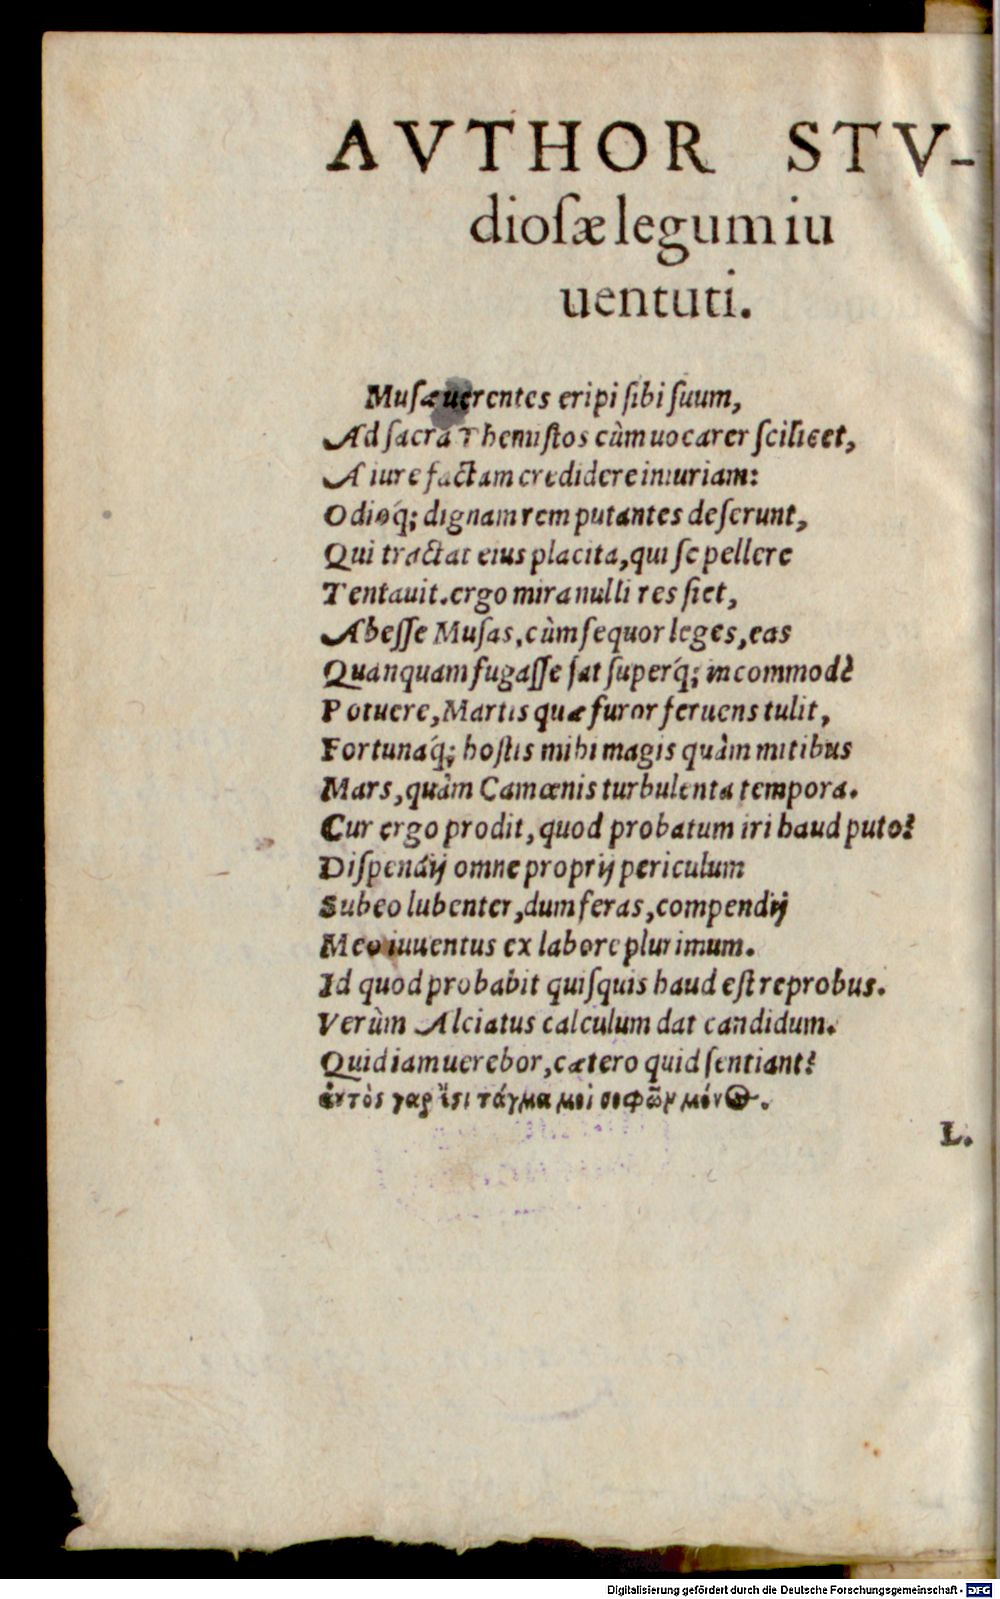 AVTHOR STV-
dioſæ legum iu
uentuti.
Muſæ uerentes eripi ſibi ſuum,
Ad ſacra Themiſtos cùm uocarer ſcilicet,
A iure factam credidere iniuriam:
Odioq́; dignam rem putantes deſerunt,
Qui tractat eius placita, qui ſe pellere
Tentauit. ergo mira nulli res ſiet,
Abeſſe Muſas, cùm ſequor leges, eas
Quanquam fugaſſe ſat ſuperq́; incommodè
Potuere, Martis quæ furor feruens tulit,
Fortunaq́; hoſtis mihi magis quàm mitibus
Mars, quàm Camœnis turbulenta tempora.
Cur ergo prodit, quod probatum iri haud puto?
Diſpendij omne proprij periculum
Subeo lubenter, dum feras, compendij
Meo iuuentus ex labore plurimum.
Id quod probabit quiſquis haud eſt reprobus.
Verùm Alciatus calculum dat candidum.
Quid iam uerebor, cætero quid ſentiant?
ἀυτὸς γαρ ἴςι τάγμα μοι σοφῶν μόνος.
L.
Digitalisierung gefördert durch die Deutsche Forschungsgemeinschaft - DFG